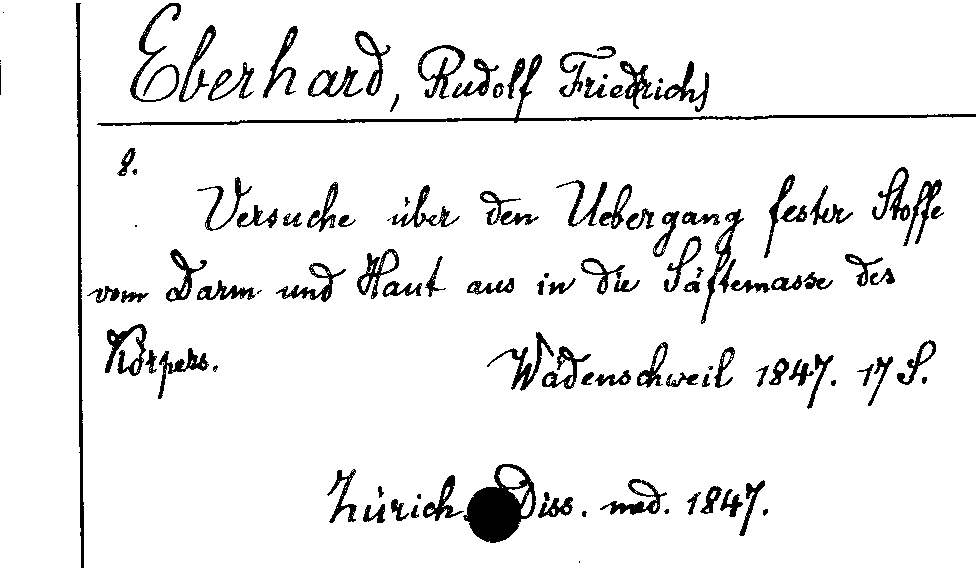 Eberhard, Rudolf Friedrich
8.
Versuche über den Uebergang fester Stoffe
vom Darm und Haut aus in die Säftemasse des
Körpers. Wädenschweil 1847. 17 S.
Zürich. Diss. med. 1847.